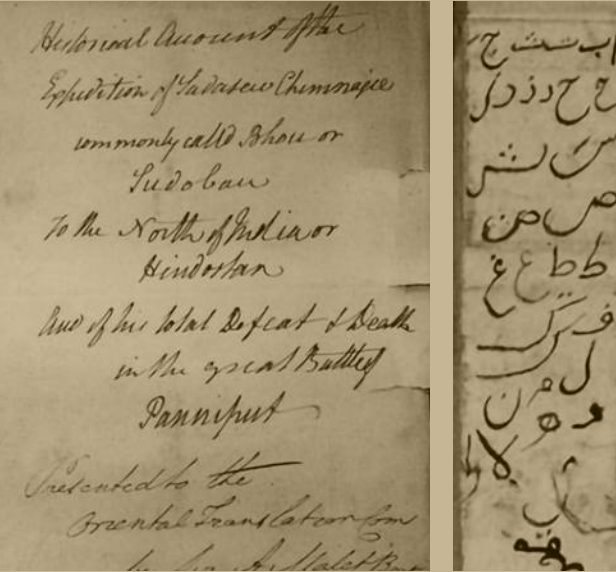 Historical Account of the
Expedition of Sadasew Chimnajee
commonly called Bhou or
Sudobau
To the North of India or
Hindostan
And of his total Defeat & Death
in the great Battle of
Panniput
Presented to the
Oriental Translation Com
by Sir Malet Bar
ا ب ت ث ج
ح خ د ذ ر ز
س ش
ص ض
ط ظ ع غ
ف ق ک
ل م ن
و ه
لا